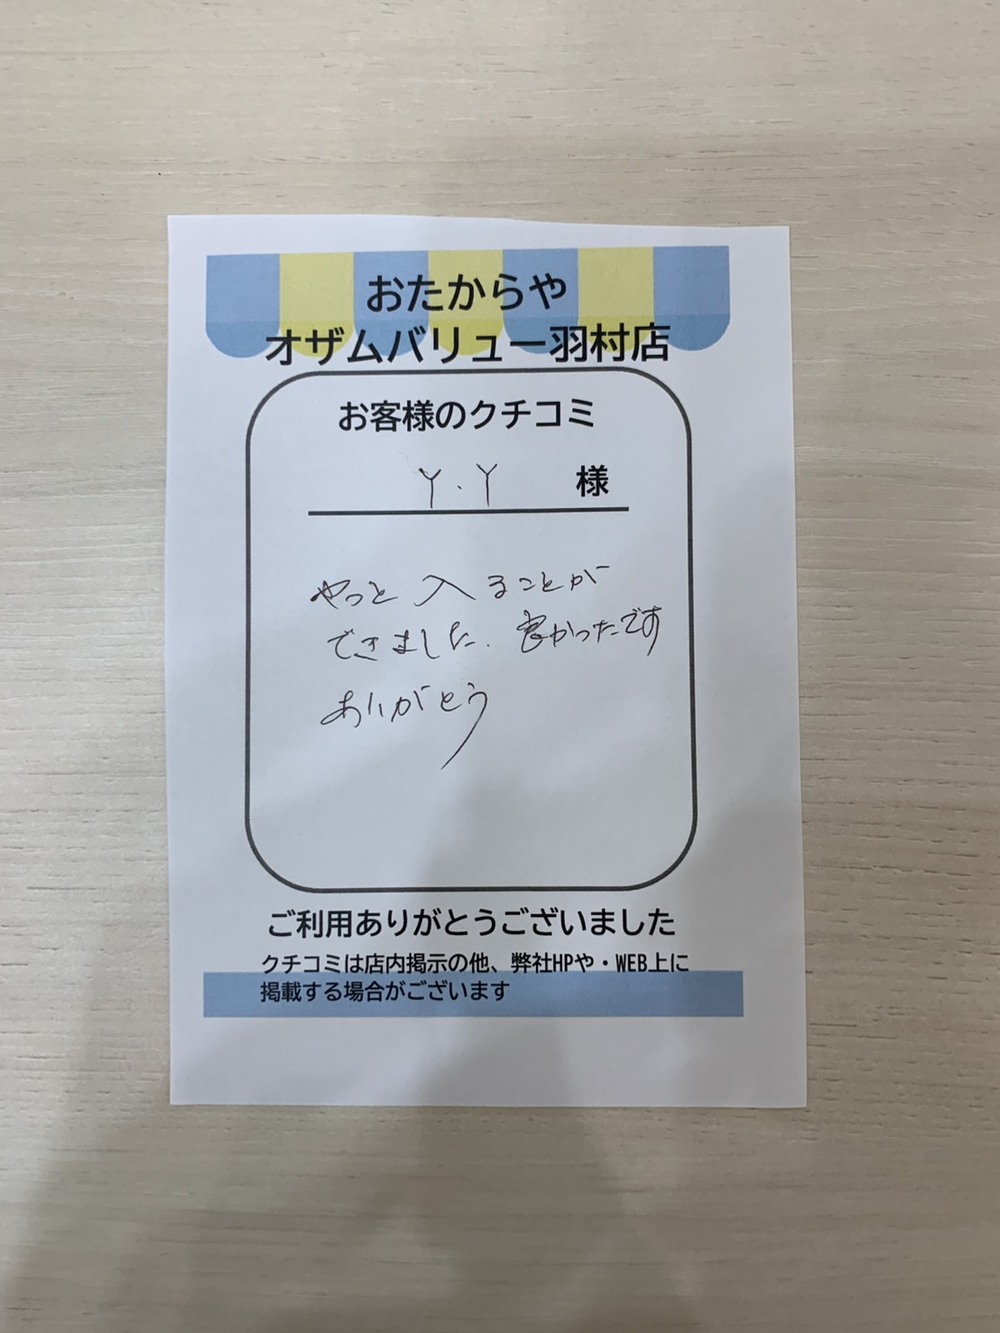 おたからや
オザムバリュー羽村店
お客様のクチコミ
Y.Y 様
やっと入ることが
できました。良かったです
ありがとう
ご利用ありがとうございました
クチコミは店内掲示の他、弊社HPや・WEB上に
掲載する場合がございます